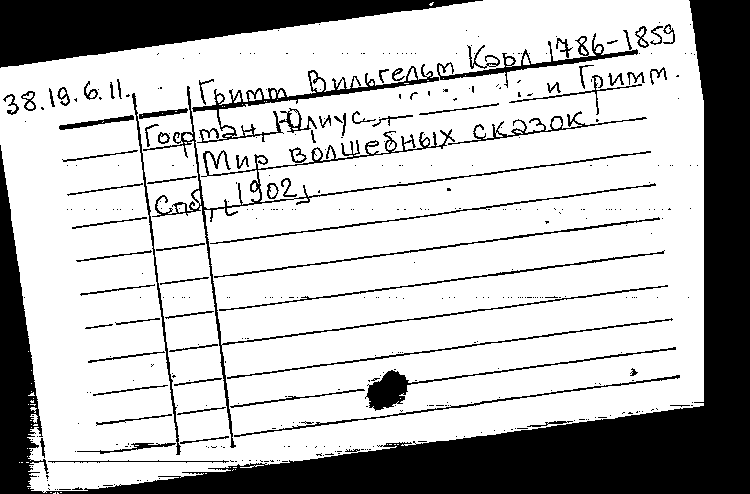 38.19.6.11.
Гримм, Вильгельм Карл 1786-1859
Гофман, Юлиус и Гримм.
Мир волшебных сказок.
Спб, [1902].